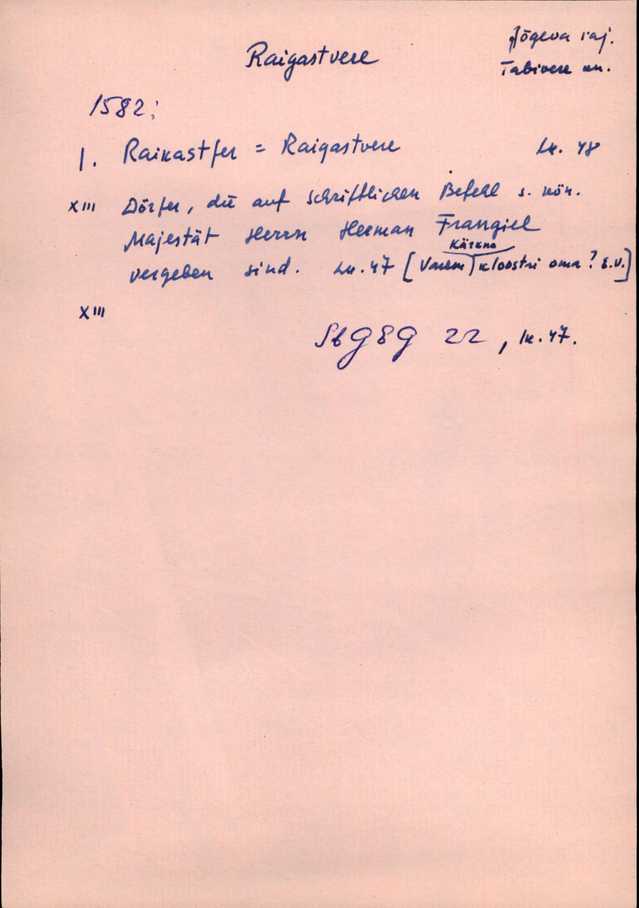 Raigastvere
Jõgeva raj.
Tabivere kn.
1582:
1. Raikastfer = Raigastvere Lk. 48
XIII Dörfer, die auf schriftlichen Befehl s. kön.
Majestät Herrn Herman Frangiel
Kärkna
vergeben sind. Lk. 47 [Varem kloostri oma? E.V.]
XIII
SbGEG 22, lk. 47.